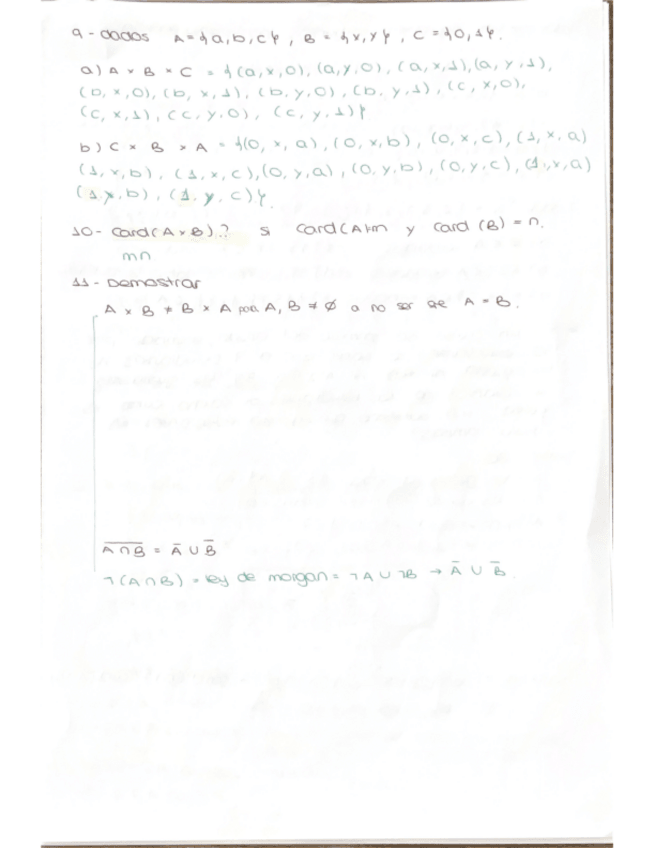 9 - dados A = {a, b, c}, B = {x, y}, C = {0, 1}.
a) A × B × C = {(a, x, 0), (a, y, 0), (a, x, 1), (a, y, 1),
(b, x, 0), (b, x, 1), (b, y, 0), (b, y, 1), (c, x, 0),
(c, x, 1), (c, y, 0), (c, y, 1)}
b) C × B × A = {(0, x, a), (0, x, b), (0, x, c), (1, x, a)
(1, x, b), (1, x, c), (0, y, a), (0, y, b), (0, y, c), (1, x, a)
(1, y, b), (1, y, c)}.
10 - Card(A × B).? si Card(A)=m y Card (B) = n.
mn
11 - Demostrar
A × B ≠ B × A para A, B ≠ ∅ a no ser que A = B.
A̅ ̅∩̅ ̅B̅ = A̅ ∪ B̅
¬(A ∩ B) = ley de morgan = ¬A ∪ ¬B → A̅ ∪ B̅.